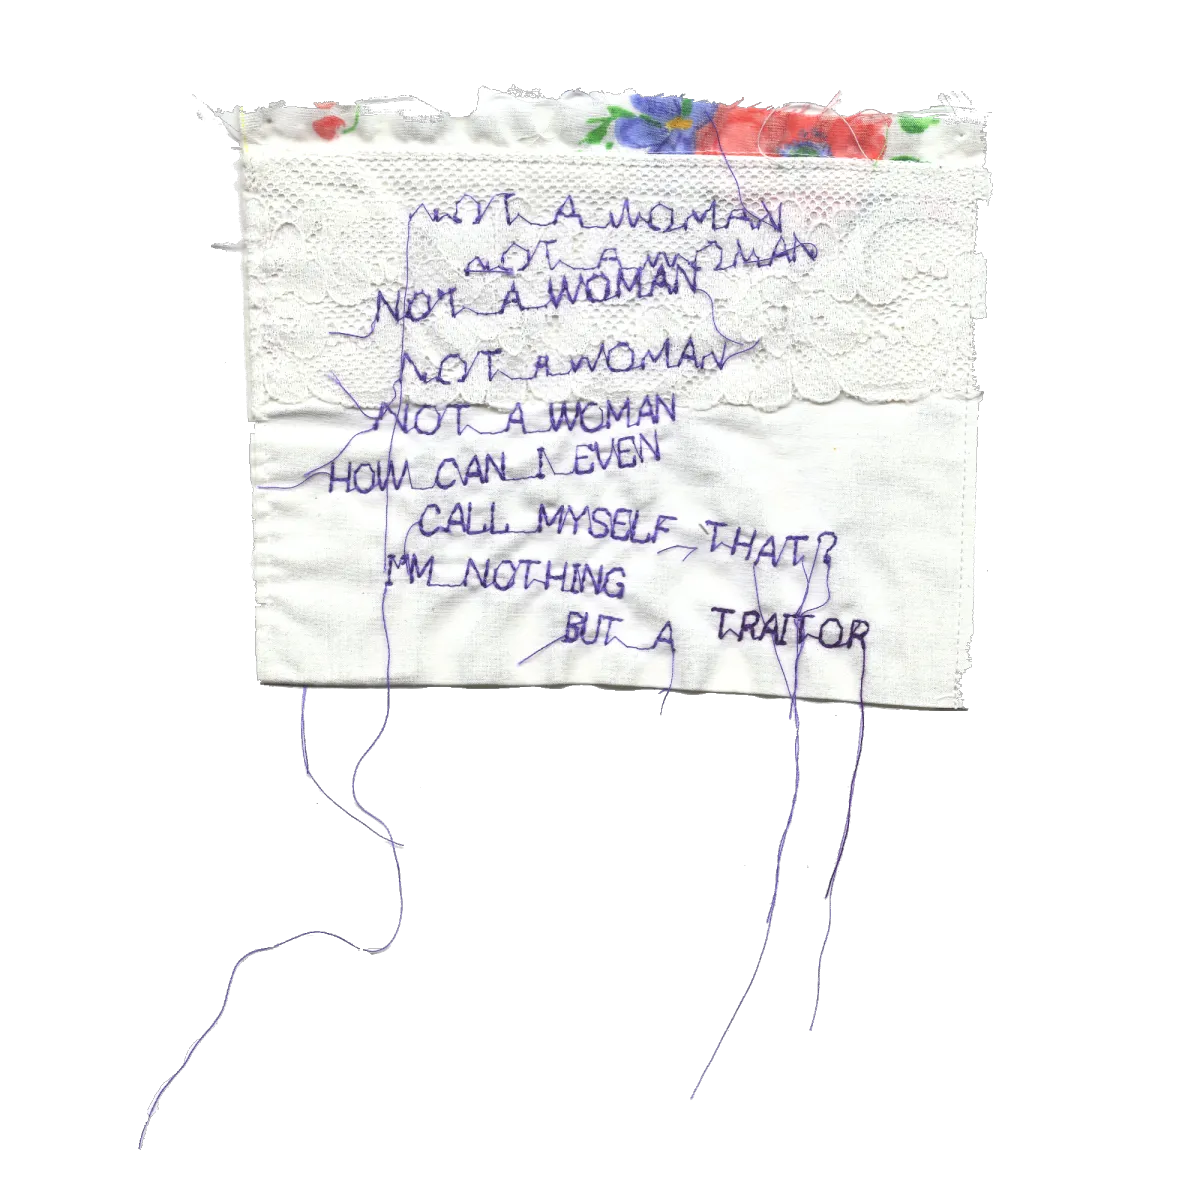 NOT A WOMAN
NOT A WOMAN
NOT A WOMAN
NOT A WOMAN
NOT A WOMAN
HOW CAN I EVEN
CALL MYSELF THAT?
I'M NOTHING
BUT A TRAITOR